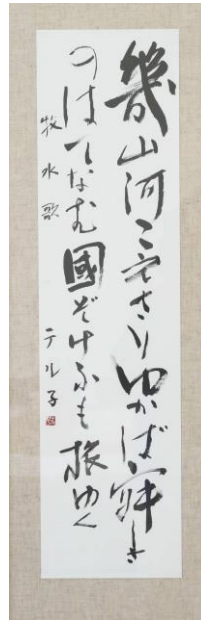 幾山河こえさりゆかば寂し
のはてなむ國ぞけふも旅ゆく
牧水歌 テル子